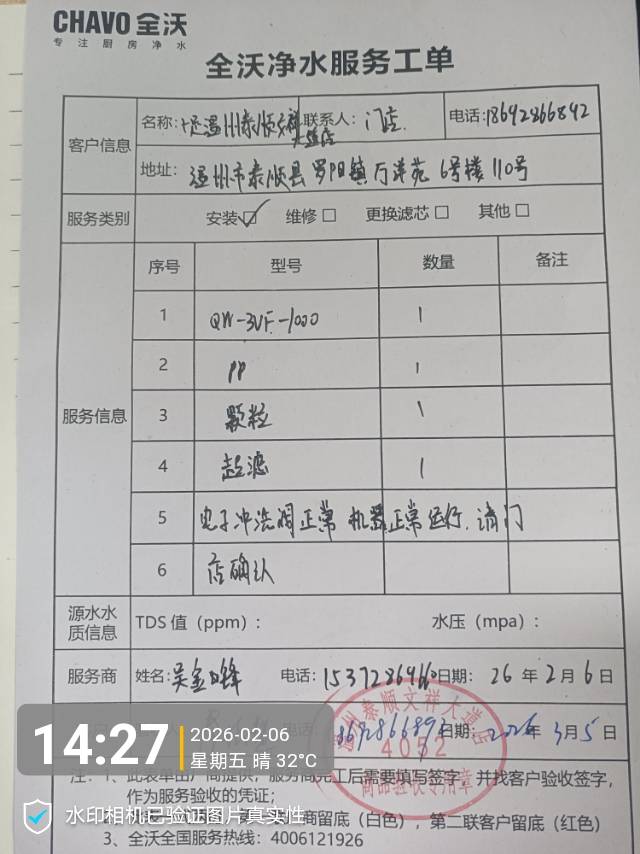 CHAVO 全沃
专注厨房净水
全沃净水服务工单
客户信息
名称: 温州泰顺文祥大道店 联系人: 门店 电话: 18692866892
地址: 温州市泰顺县罗阳镇万洋苑6号楼110号
服务类别 安装☑ 维修□ 更换滤芯□ 其他□
服务信息
序号 型号 数量 备注
1 QW-3UF-1000 1
2 PP 1
3 颗粒 1
4 超滤 1
5 电子冲洗阀正常 机器正常运行. 请门
6 店确认
源水水质信息 TDS 值（ppm）: 水压（mpa）:
服务商 姓名: 吴金锋 电话: 日期: 26 年 2 月 6 日
日期: 2026年 3月 5日
泰顺文祥大道店
4052
商品验收专用章
14:27
2026-02-06
星期五 晴 32°C
注: 1、此表单由厂商提供，服务商完工后需要填写签字，并找客户验收签字，
作为服务验收的凭证；
商留底（白色），第二联客户留底（红色）
3、全沃全国服务热线: 4006121926
水印相机已验证图片真实性